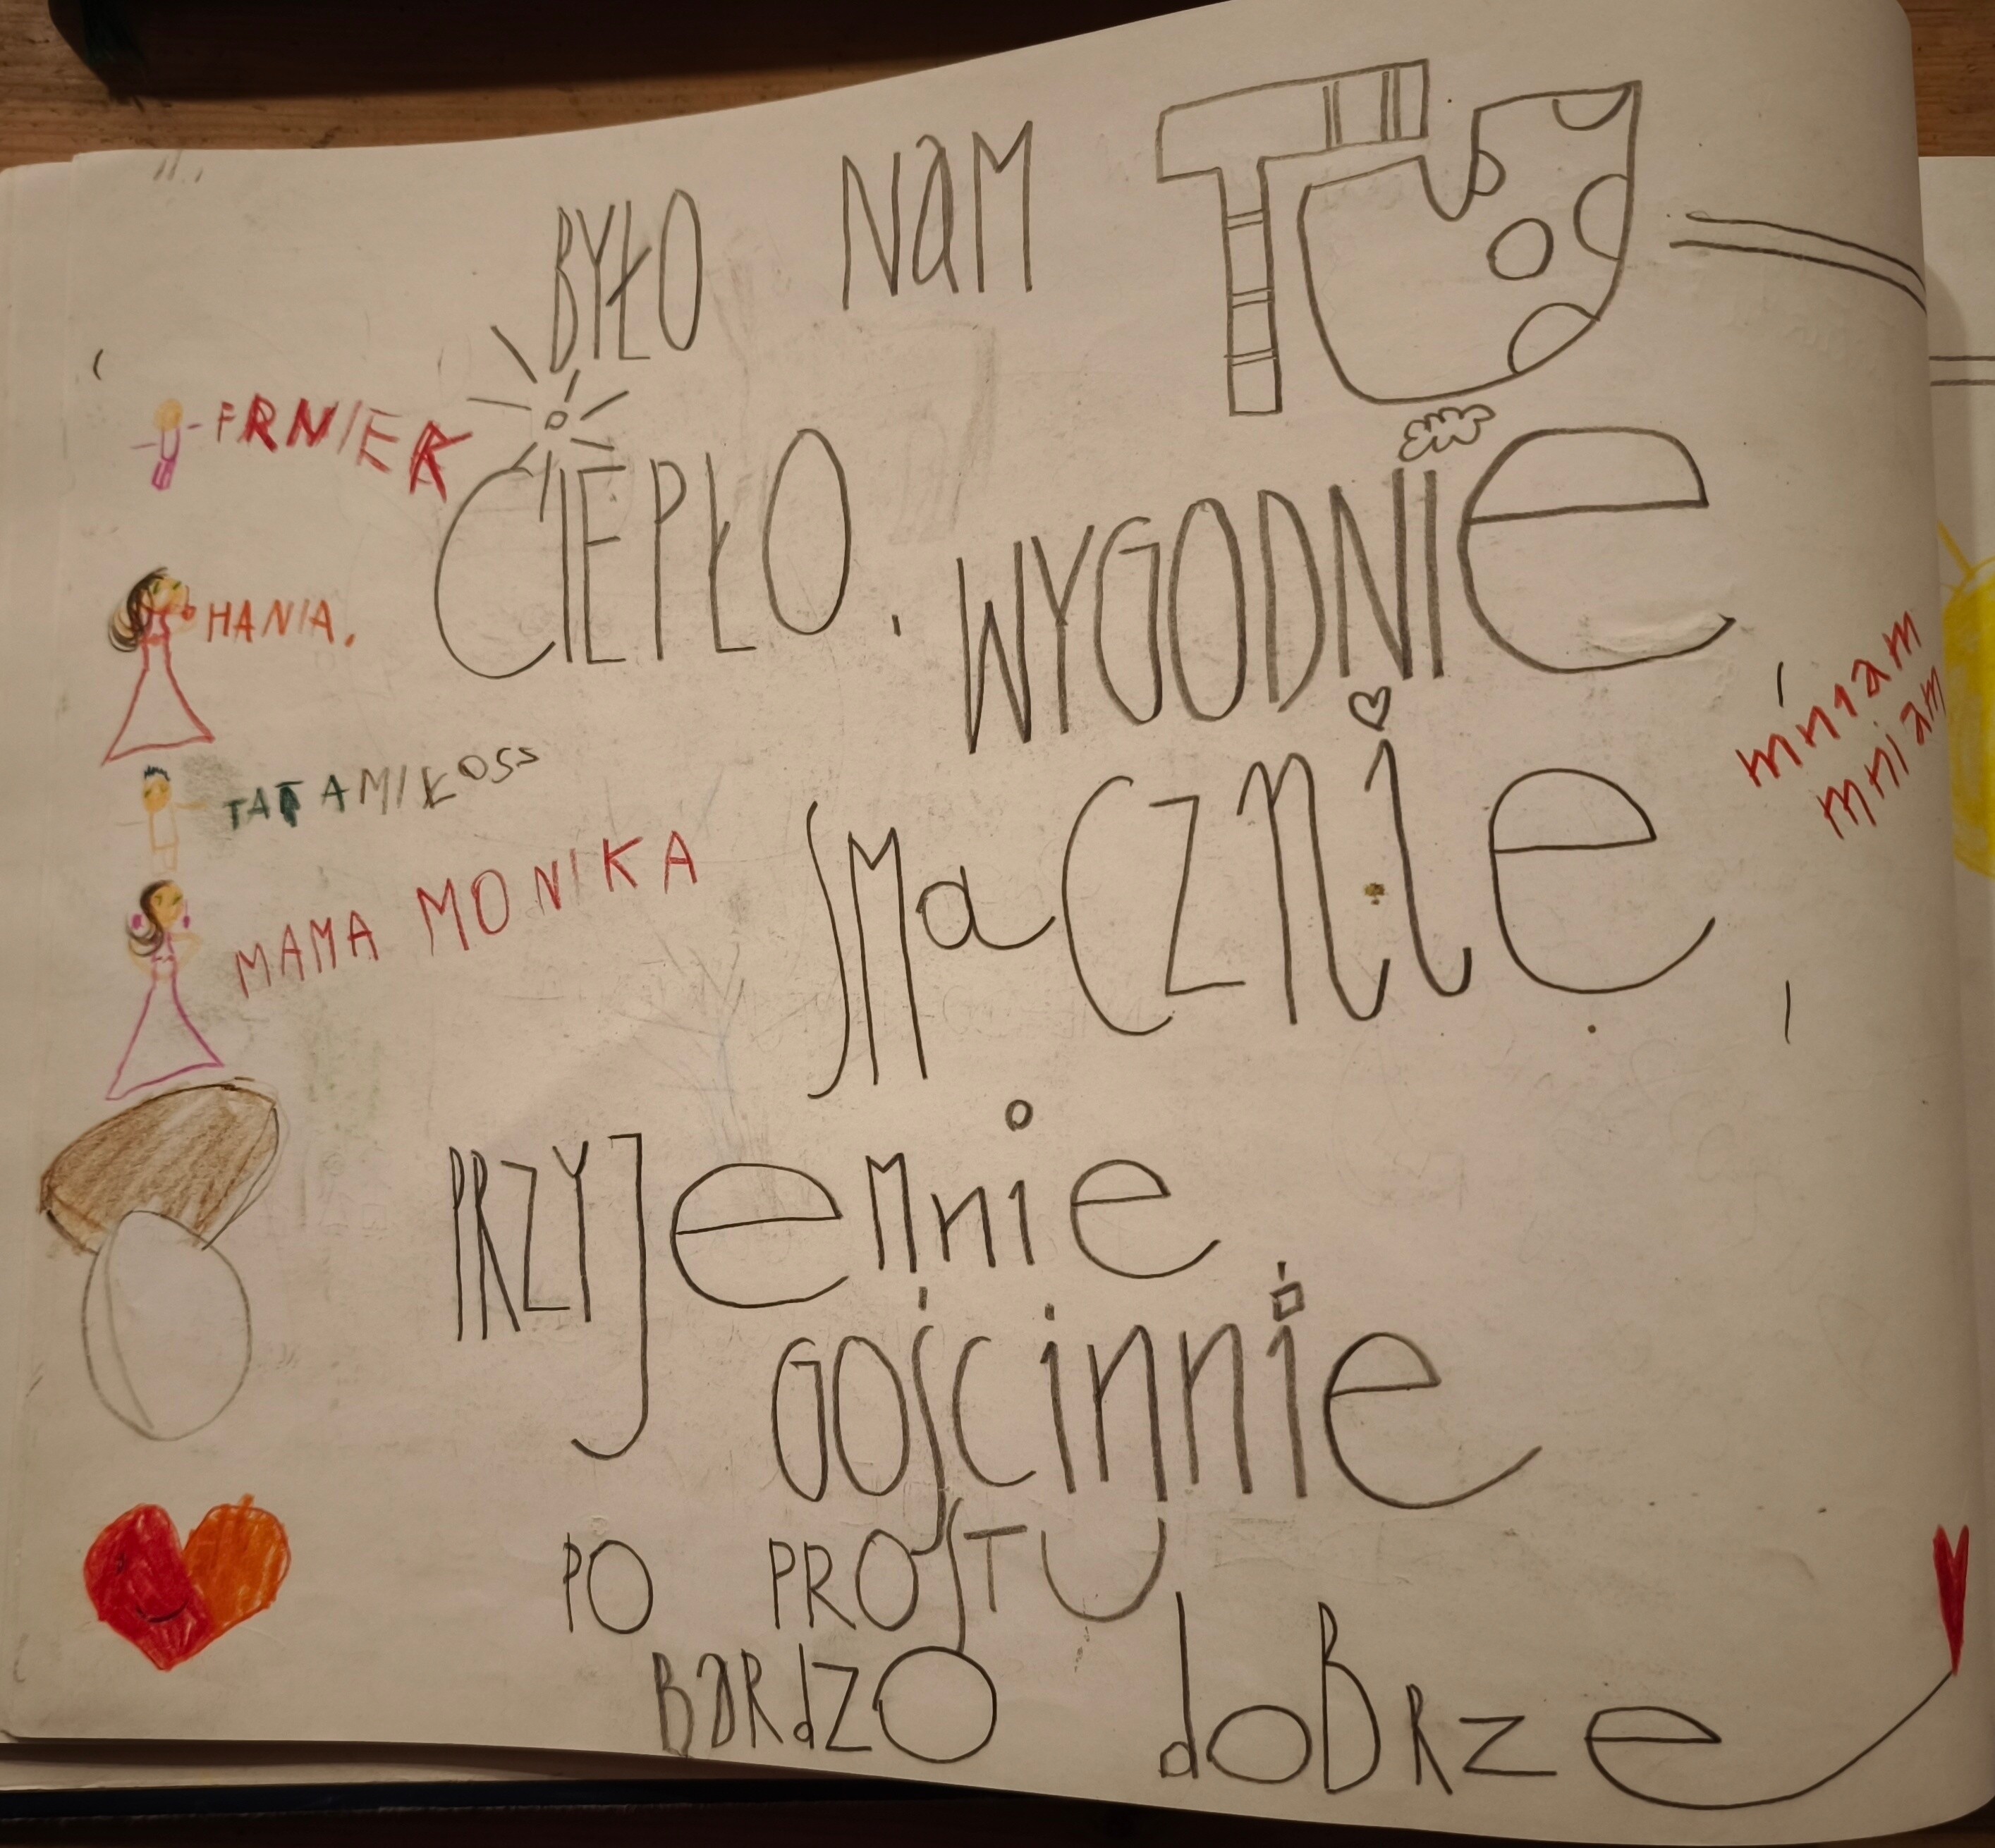 BYŁO NAM TU
CIEPŁO, WYGODNIE
SMACZNIE
mniam
mniam
PRZYJEMNIE
GOŚCINNIE
PO PROSTU
BARDZO DOBRZE
FRNIEK
HANIA.
TATA MIŁOSS
MAMA MONIKA